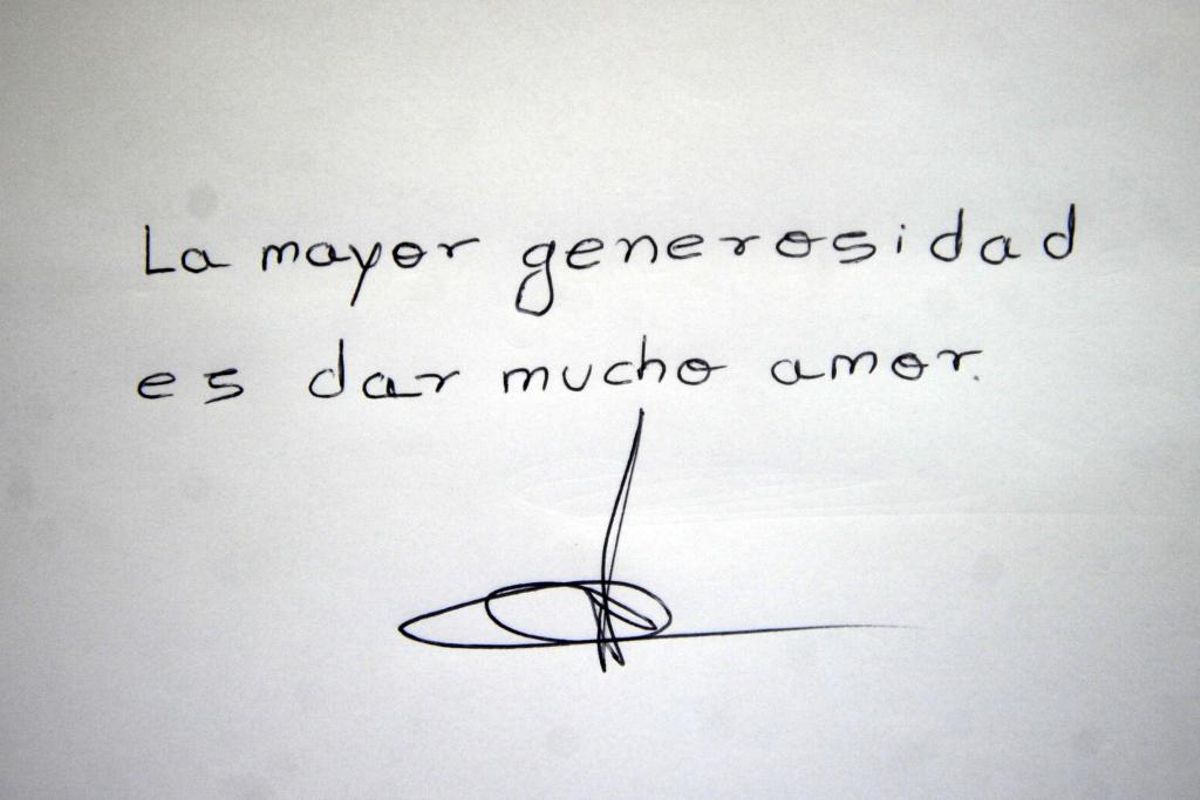 La mayor generosidad
es dar mucho amor.